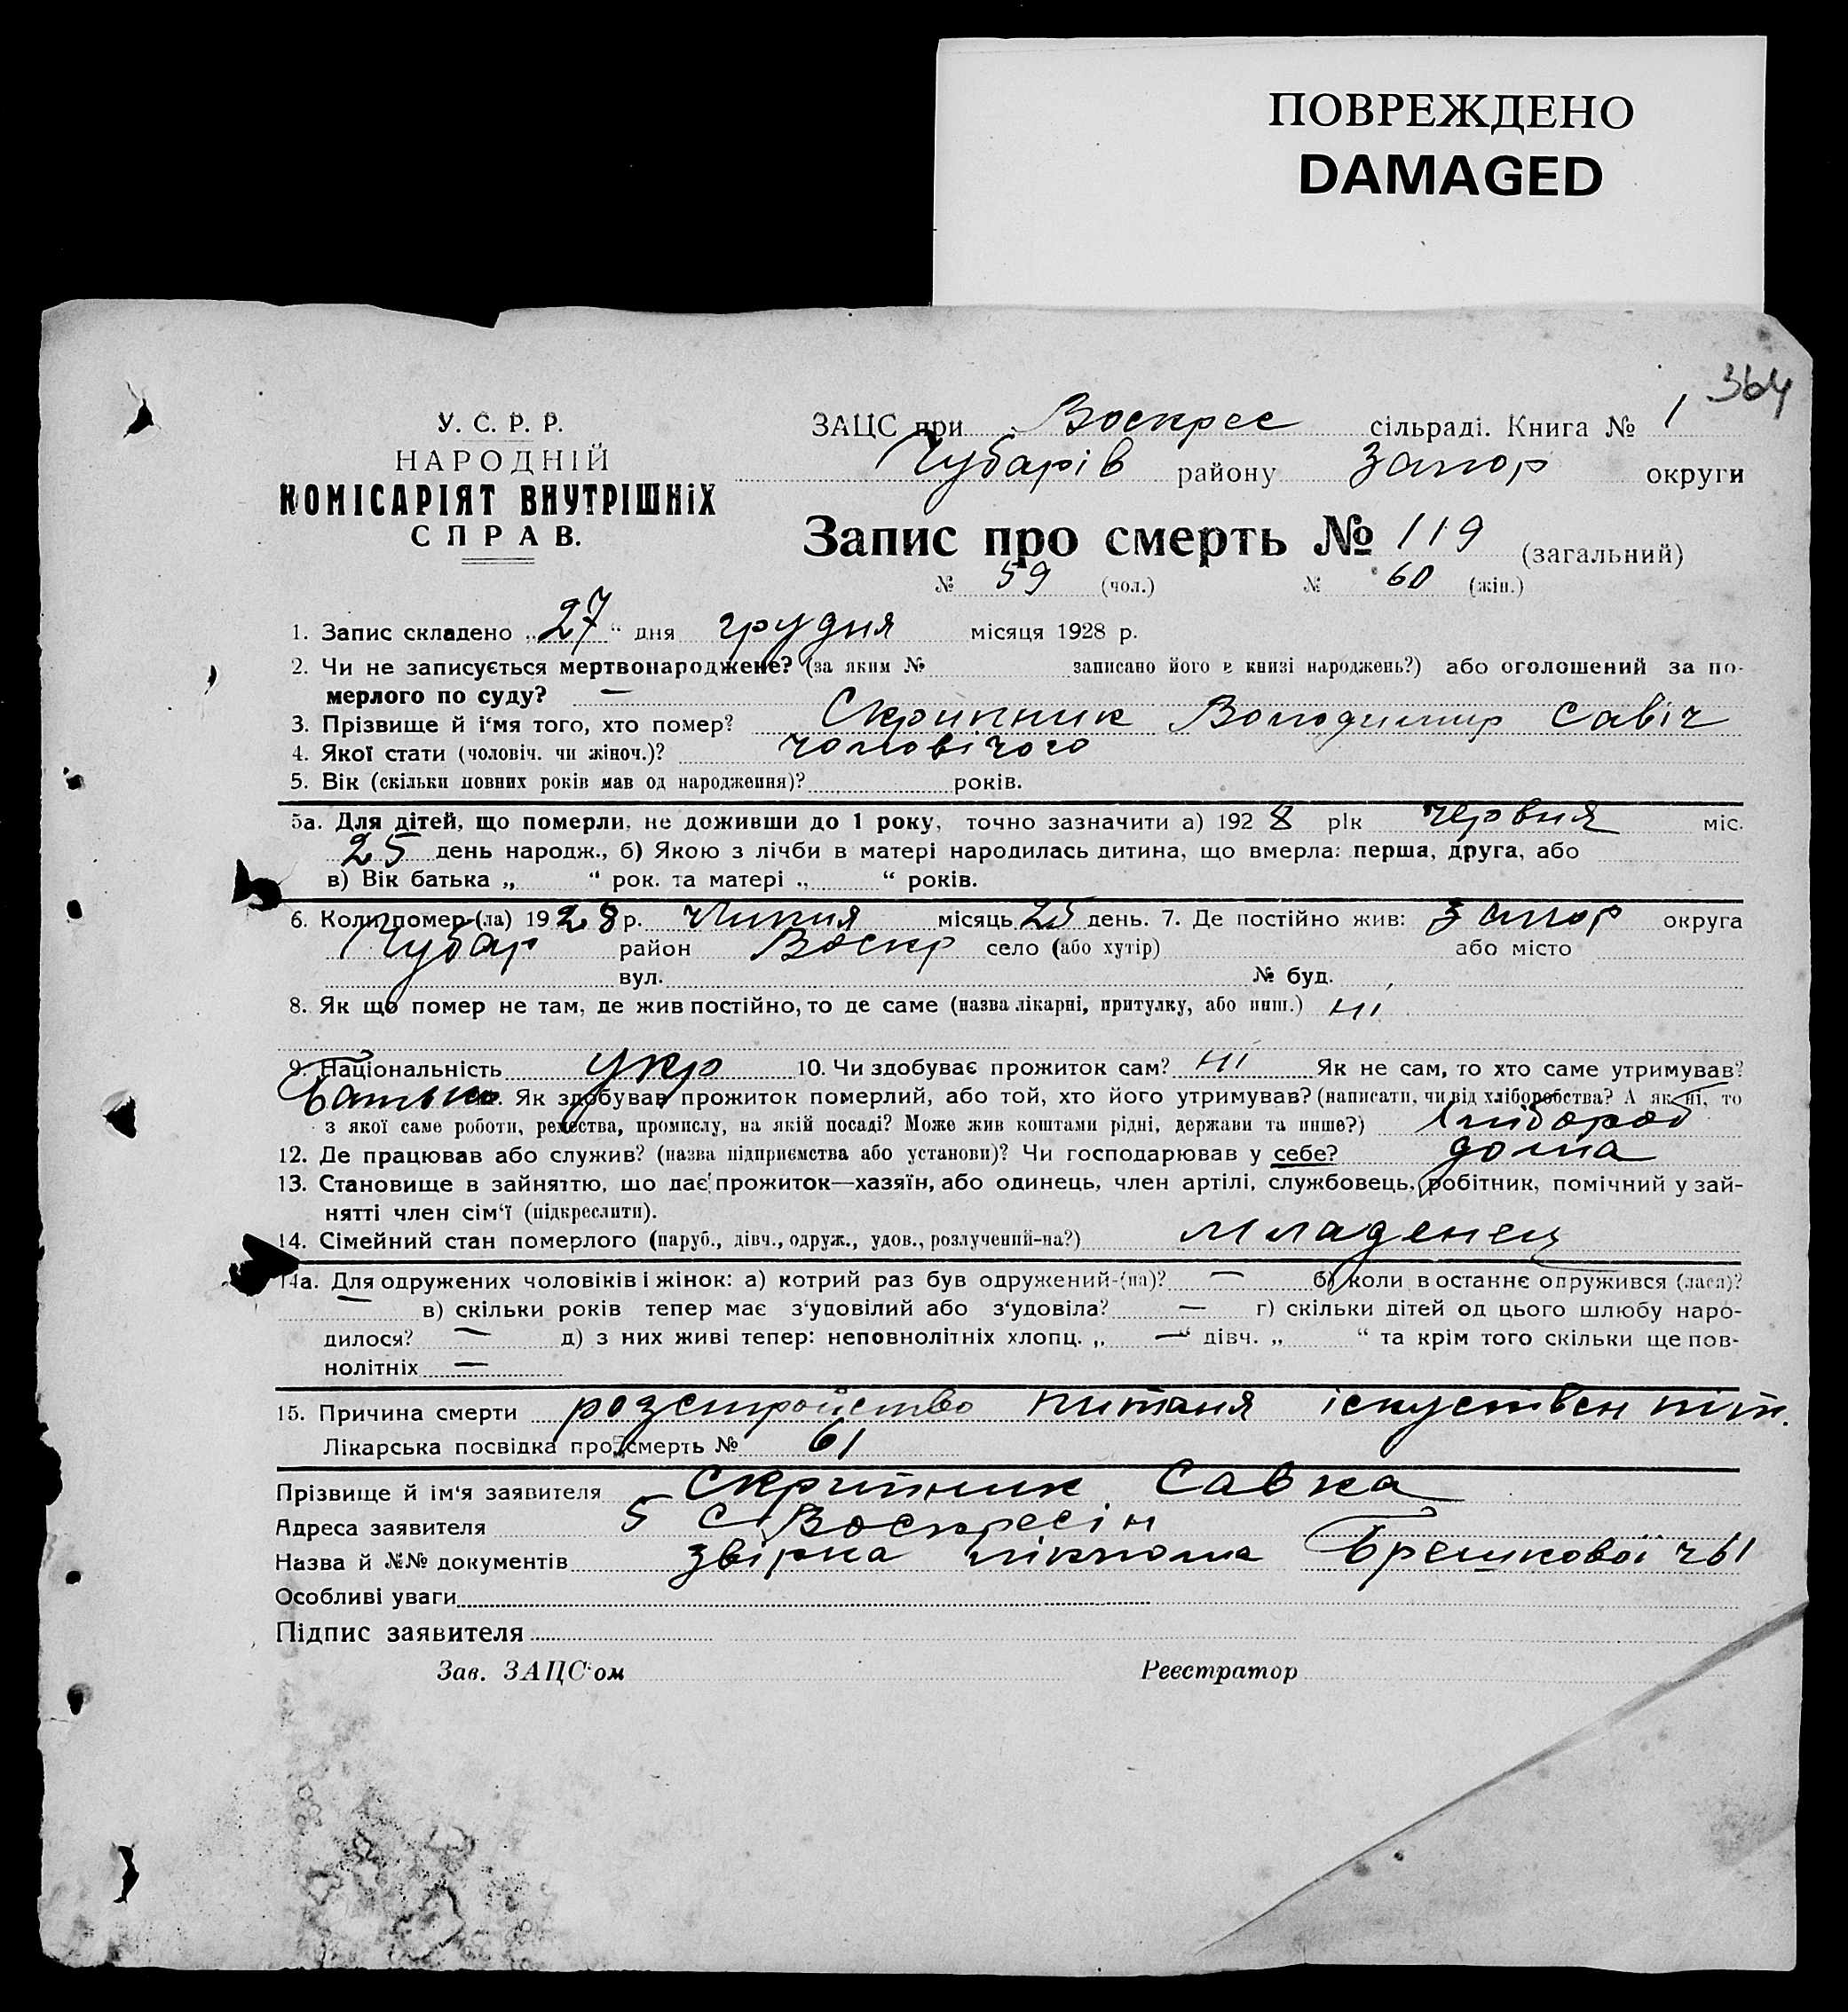 ПОВРЕЖДЕНО
DAMAGED
364
У. С. Р. Р.
НАРОДНІЙ
КОМІСАРІЯТ ВНУТРІШНІХ
СПРАВ.
ЗАЦС при Воскрес сільраді. Книга № 1
Чубарів району Запор округи
Запис про смерть № 119 (загальний)
№ 59 (чол.) № 60 (жін.)
1. Запис складено „27“ дня грудня місяця 1928 р.
2. Чи не записується мертвонароджене? (за яким № записано його в книзі народжень?) або оголошений за по-
мерлого по суду? —
3. Прізвище й ім'я того, хто помер? Скрипник Володимир Савіч
4. Якої стати (чоловіч. чи жіноч.)? чоловічого
5. Вік (скільки повних років мав од народження)? років.
5а. Для дітей, що померли, не доживши до 1 року, точно зазначити а) 1928 рік червня міс.
25 день народж., б) Якою з лічби в матері народилась дитина, що вмерла: перша, друга, або
в) Вік батька „ “ рок. та матері „ “ років.
6. Коли помер-(ла) 1928 р. липня місяць 25 день. 7. Де постійно жив: Запор округа
Чубар район Воскр село (або хутір) або місто
вул. № буд.
8. Як що помер не там, де жив постійно, то де саме (назва лікарні, притулку, або инш.) ні
9. Національність укр 10. Чи здобуває прожиток сам? ні Як не сам, то хто саме утримував?
Батько Як здобував прожиток померлий, або той, хто його утримував? (написати, чи від хліборобства? А як ні, то
з якої саме роботи, ремества, промислу, на якій посаді? Може жив коштами рідні, держави та инше?) Хлібороб
12. Де працював або служив? (назва підприємства або установи)? Чи господарював у себе? дома
13. Становище в зайняттю, що дає прожиток—хазяїн, або одинець, член артілі, службовець, робітник, помічний у зай-
нятті член сім'ї (підкреслити).
14. Сімейний стан померлого (паруб., дівч., одруж., удов., розлучений-на?) младенец
14а. Для одружених чоловіків і жінок: а) котрий раз був одружений-(на)? — б) коли в останнє одружився (лася)?
— в) скільки років тепер має з'удовілий або з'удовіла? — г) скільки дітей од цього шлюбу наро-
дилося? — д) з них живі тепер: неповнолітніх хлопц. „ —“ дівч. „ “ та крім того скільки ще пов-
нолітніх —
15. Причина смерти розстройство питаня іскуствен піт.
Лікарська посвідка про смерть № 61
Прізвище й ім'я заявителя Скрипник Савка
Адреса заявителя 5 С Воскресін
Назва й №№ документів звірка Брешкової ч 61
Особливі уваги
Підпис заявителя
Зав. ЗАЦС'ом Реєстратор